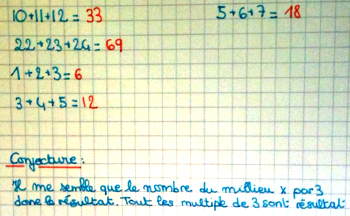 10+11+12 = 33
22+23+24 = 69
1+2+3 = 6
3+4+5 = 12
5+6+7 = 18
Conjecture :
Il me semble que le nombre du milieu x par 3
donne le résultat. Tout les multiple de 3 sont résultat